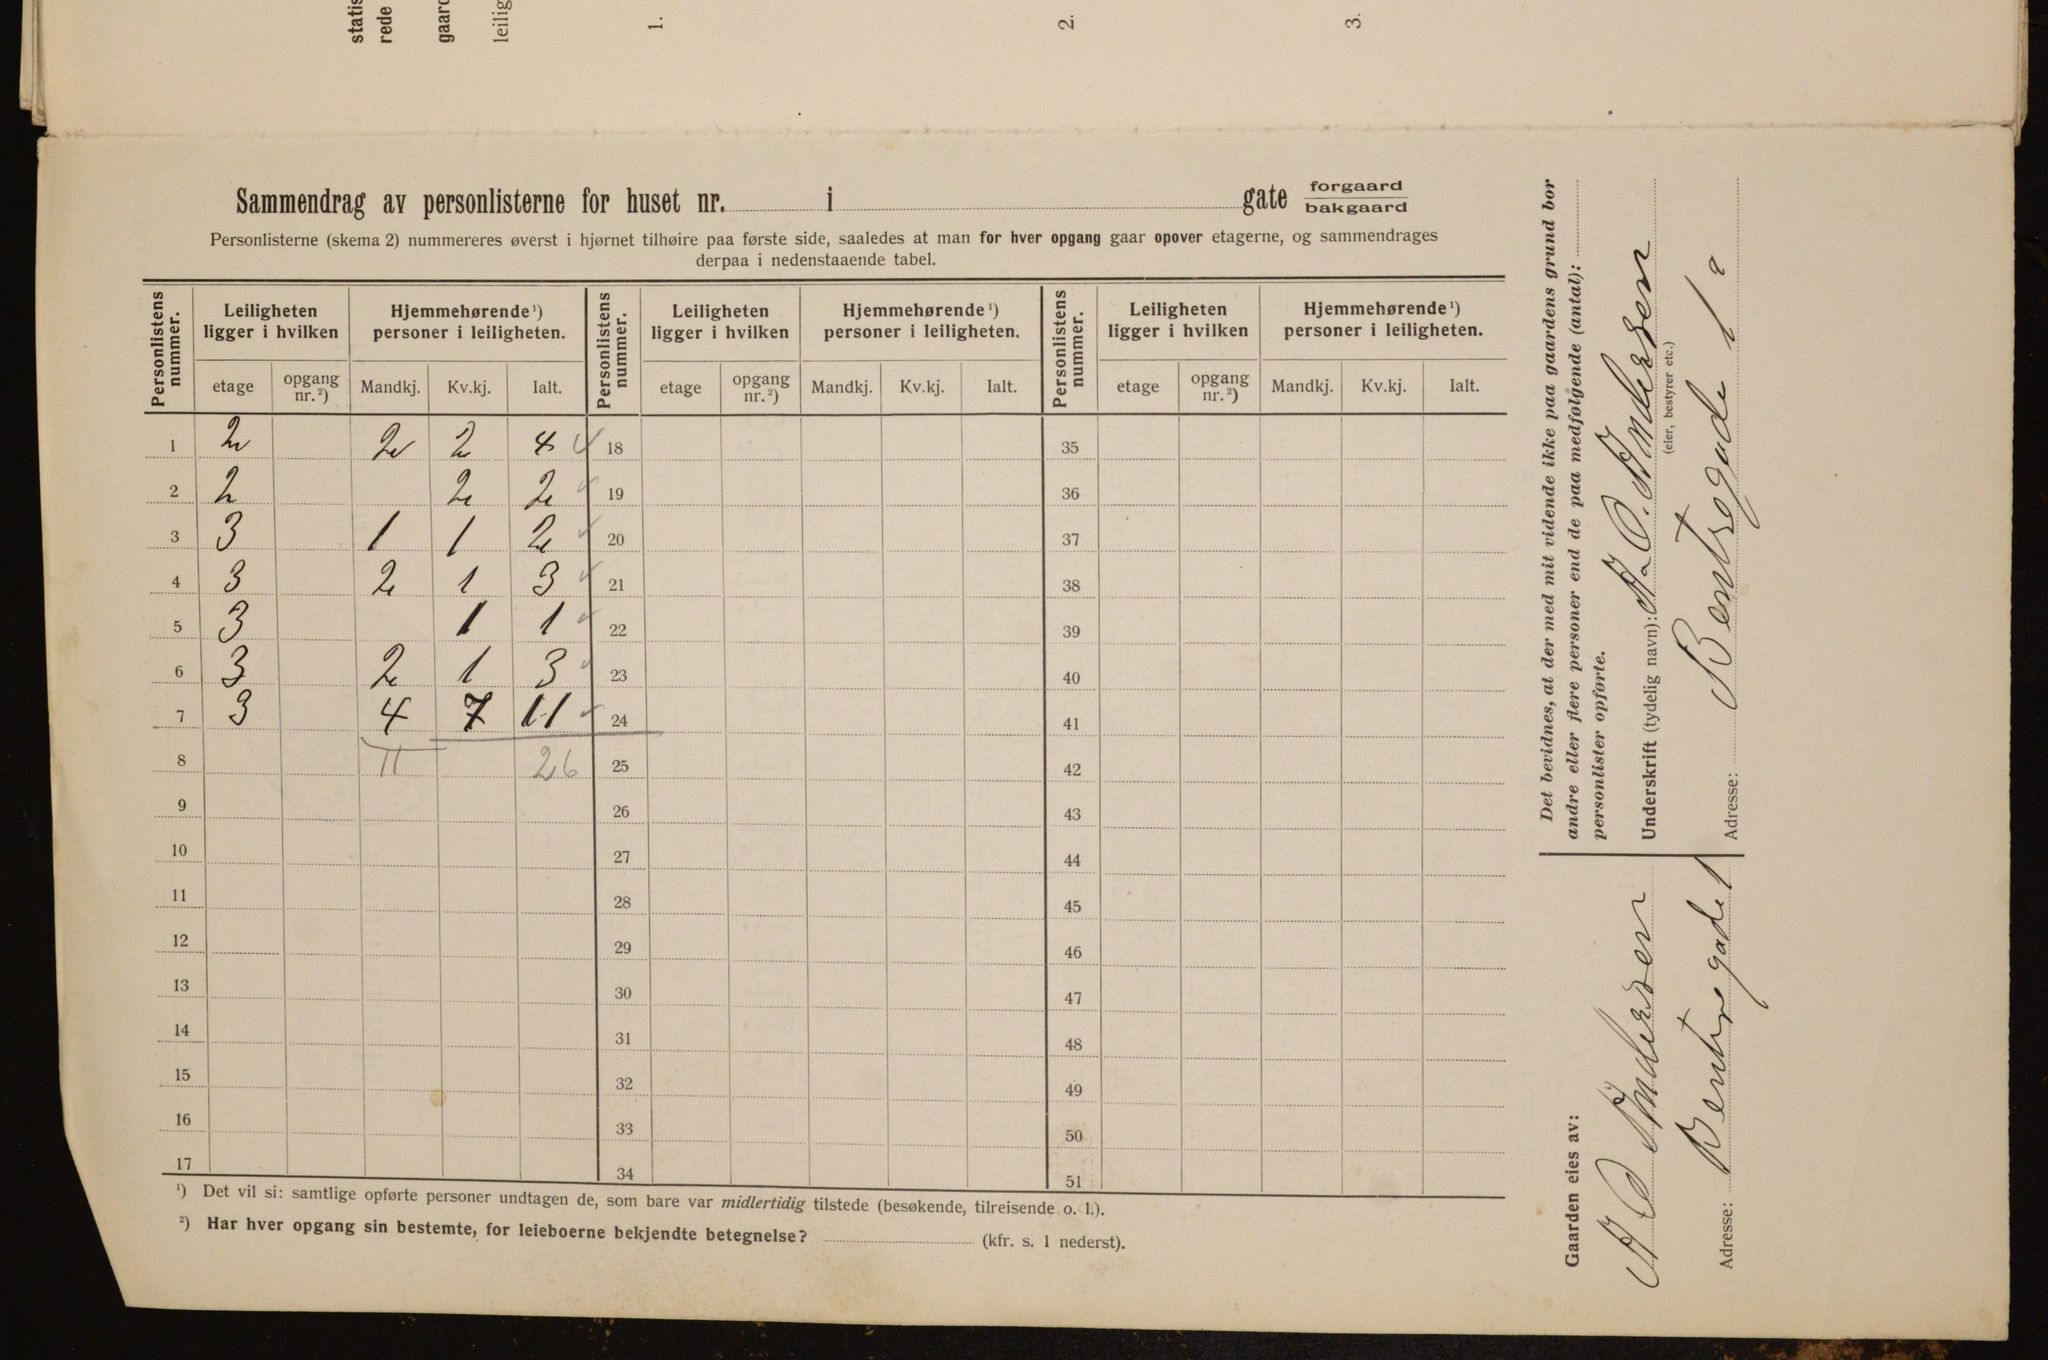 statis
rede
gaard
leilig
1.
2.
3.
Sammendrag av personlisterne for huset nr. i gate forgaard
bakgaard
Personlisterne (skema 2) nummereres øverst i hjørnet tilhøire paa første side, saaledes at man for hver opgang gaar opover etagerne, og sammendrages
derpaa i nedenstaaende tabel.
Personlistens nummer. Leiligheten ligger i hvilken Hjemmehørende ¹) personer i leiligheten. Personlistens nummer. Leiligheten ligger i hvilken Hjemmehørende ¹) personer i leiligheten. Personlistens nummer. Leiligheten ligger i hvilken Hjemmehørende ¹) personer i leiligheten.
etage opgang nr. ²) Mandkj. Kv.kj. Ialt. etage opgang nr. ²) Mandkj. Kv.kj. Ialt. etage opgang nr. ²) Mandkj. Kv.kj. Ialt.
1 2 2 2 4 4 18 35
2 2 2 2 ✓ 19 36
3 3 1 1 2 ✓ 20 37
4 3 2 1 3 ✓ 21 38
5 3 1 1 ✓ 22 39
6 3 2 1 3 ✓ 23 40
7 3 4 7 11 ✓ 24 41
8 11 26 25 42
9 26 43
10 27 44
11 28 45
12 29 46
13 30 47
14 31 48
15 32 49
16 33 50
17 34 51
¹) Det vil si: samtlige opførte personer undtagen de, som bare var midlertidig tilstede (besøkende, tilreisende o. l.).
²) Har hver opgang sin bestemte, for leieboerne bekjendte betegnelse? (kfr. s. 1 nederst).
Det bevidnes, at der med mit vidende ikke paa gaardens grund bor
andre eller flere personer end de paa medfølgende (antal):
personlister opførte.
Underskrift (tydelig navn): A. O. Andersen
(eier, bestyrer etc.)
Adresse: Bentsegade 1 a
Gaarden eies av:
A O Andersen
Adresse: Bentsegade 1